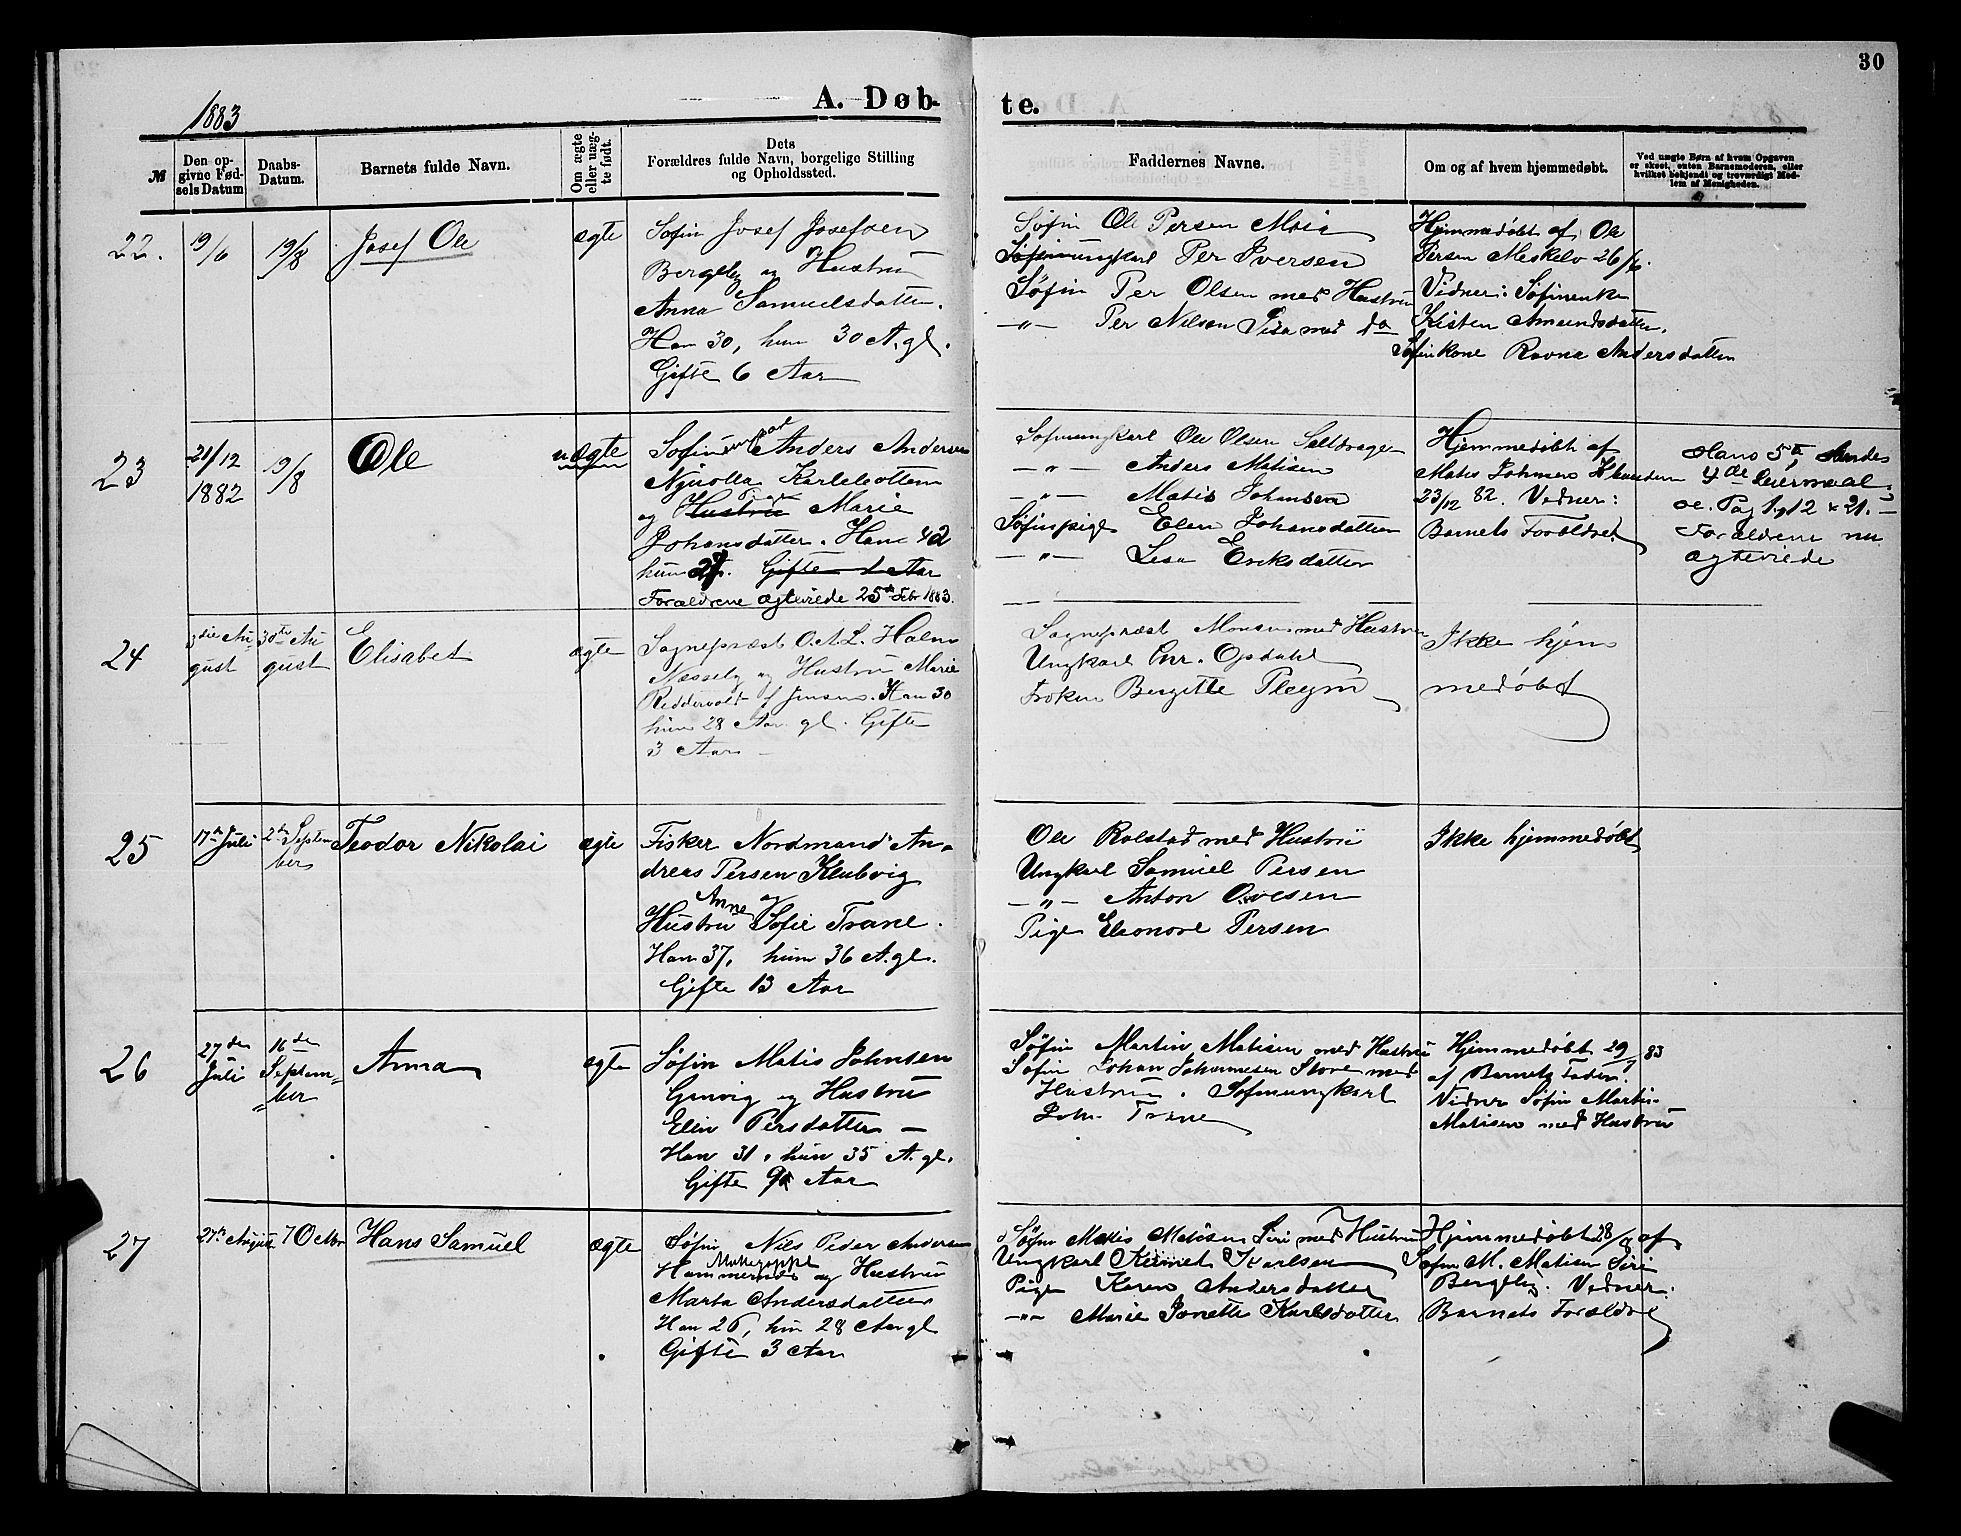 30
1883
A. Døb-
te.
№
Den op-
givne Fød-
sels Datum
Daabs-
Datum.
Barnets fulde Navn.
Om ægte
eller uæg-
te født.
Dets
Forældres fulde Navn, borgelige Stilling
og Opholdssted.
Faddernes Navne.
Om og af hvem hjemmedøbt.
Ved uægte Børn af hvem Opgaven
er skeet, enten Barnemoderen, eller
hvilket bekjendt og troværdigt Med-
lem af Menigheden.
22.
19/6
19/8
Josef Ole
ægte
Søfin Josef Josefsen
Bergeby og Hustru
Anna Samuelsdatter.
Han 30, hun 30 A. gl.
Gifte 6 Aar
Søfin Ole Persen
Søfinungkarl Per Iversen
Søfin Per Olsen med Hustru
-"- Per Nilsen med do
Hjemmedøbt af Ole
Persen Meskelv 26/6.
Vidner: Søfinenke
Kisten Amundsdatter.
Søfinkone Ravna Andersdatter
23
21/12
1882
19/8
Ole
uægte
Søfinungkarl Anders Andersen
Karlebotten
og Hustru Pige Marie
Johansdatter. Han 42
hun 27. Gifte 1 Aar
Forældrene ægteviede 25de Febr 1883.
Søfinungkarl Ole Olsen
-"- Anders Matisen
-"- Matis Johansen
Søfinpige Elen Johansdatter
-"- Lisa Eriksdatter
Hjemmedøbt af
Matis Johnsen
23/12 82. Vidner:
Barnets Forældre
Hans 5te, hendes
4de Leiermaal
Pag 12 & 21.
Forældrene nu
ægteviede
24
3die Au-
gust
30te Au-
gust
Elisabet
ægte
Sognepræst O.A.L. Holm
Nesseby og Hustru Marie
Reddervold f. Jensen. Han 30
hun 28 Aar gl. Gifte
3 Aar –
Sognepræst Monsen med Hustru
Ungkarl Chr. Opdahl
Frøken Bergitte Pleym
Ikke hjem
medøbt
25
17de Juli
2de Septem
ber
Teodor Nikolai
ægte
Fisker Nordmand An-
dreas Persen Klubvig
og
Hustru Anne Sofie Trane.
Han 37, hun 36 A. gl.
Gifte 13 Aar
Ole Rolstad med Hustru
Ungkarl Samuel Persen
-"- Anton Ovesen
Pige Eleonore Persen
Ikke hjemmedøbt
26
27de
Juli
16de
Septem-
ber
Anna
ægte
Søfin Matis Johnsen
og Hustru
Elen Persdatter –
Han 31, hun 35 A. gl.
Gifte 9 Aar
Søfin Martin Matisen med Hustru
Søfin Johan Johannesen Store med
Hustru. Søfinungkarl
Joh. Trane
Hjemmedøbt 29/7 83
af Barnets Fader.
Vidner Søfin Martin
Matisen med Hustru
27
27de August
7 Octbr
Hans Samuel
ægte
Søfin Nils Peder Andersen
Hammernes og Hustru
Marta Andersdatter
Han 26, hun 28 Aar gl
Gifte 3 Aar
Søfin Matis Matisen Siri med Hustru
Ungkarl Karlsen
Pige Karen Andersdatter
-"- Marie Janette Karlsdatter
Hjemmedøbt 28/9 af
Søfin M. Matisen Siri
Bergeby. Vidner:
Barnets Forældre